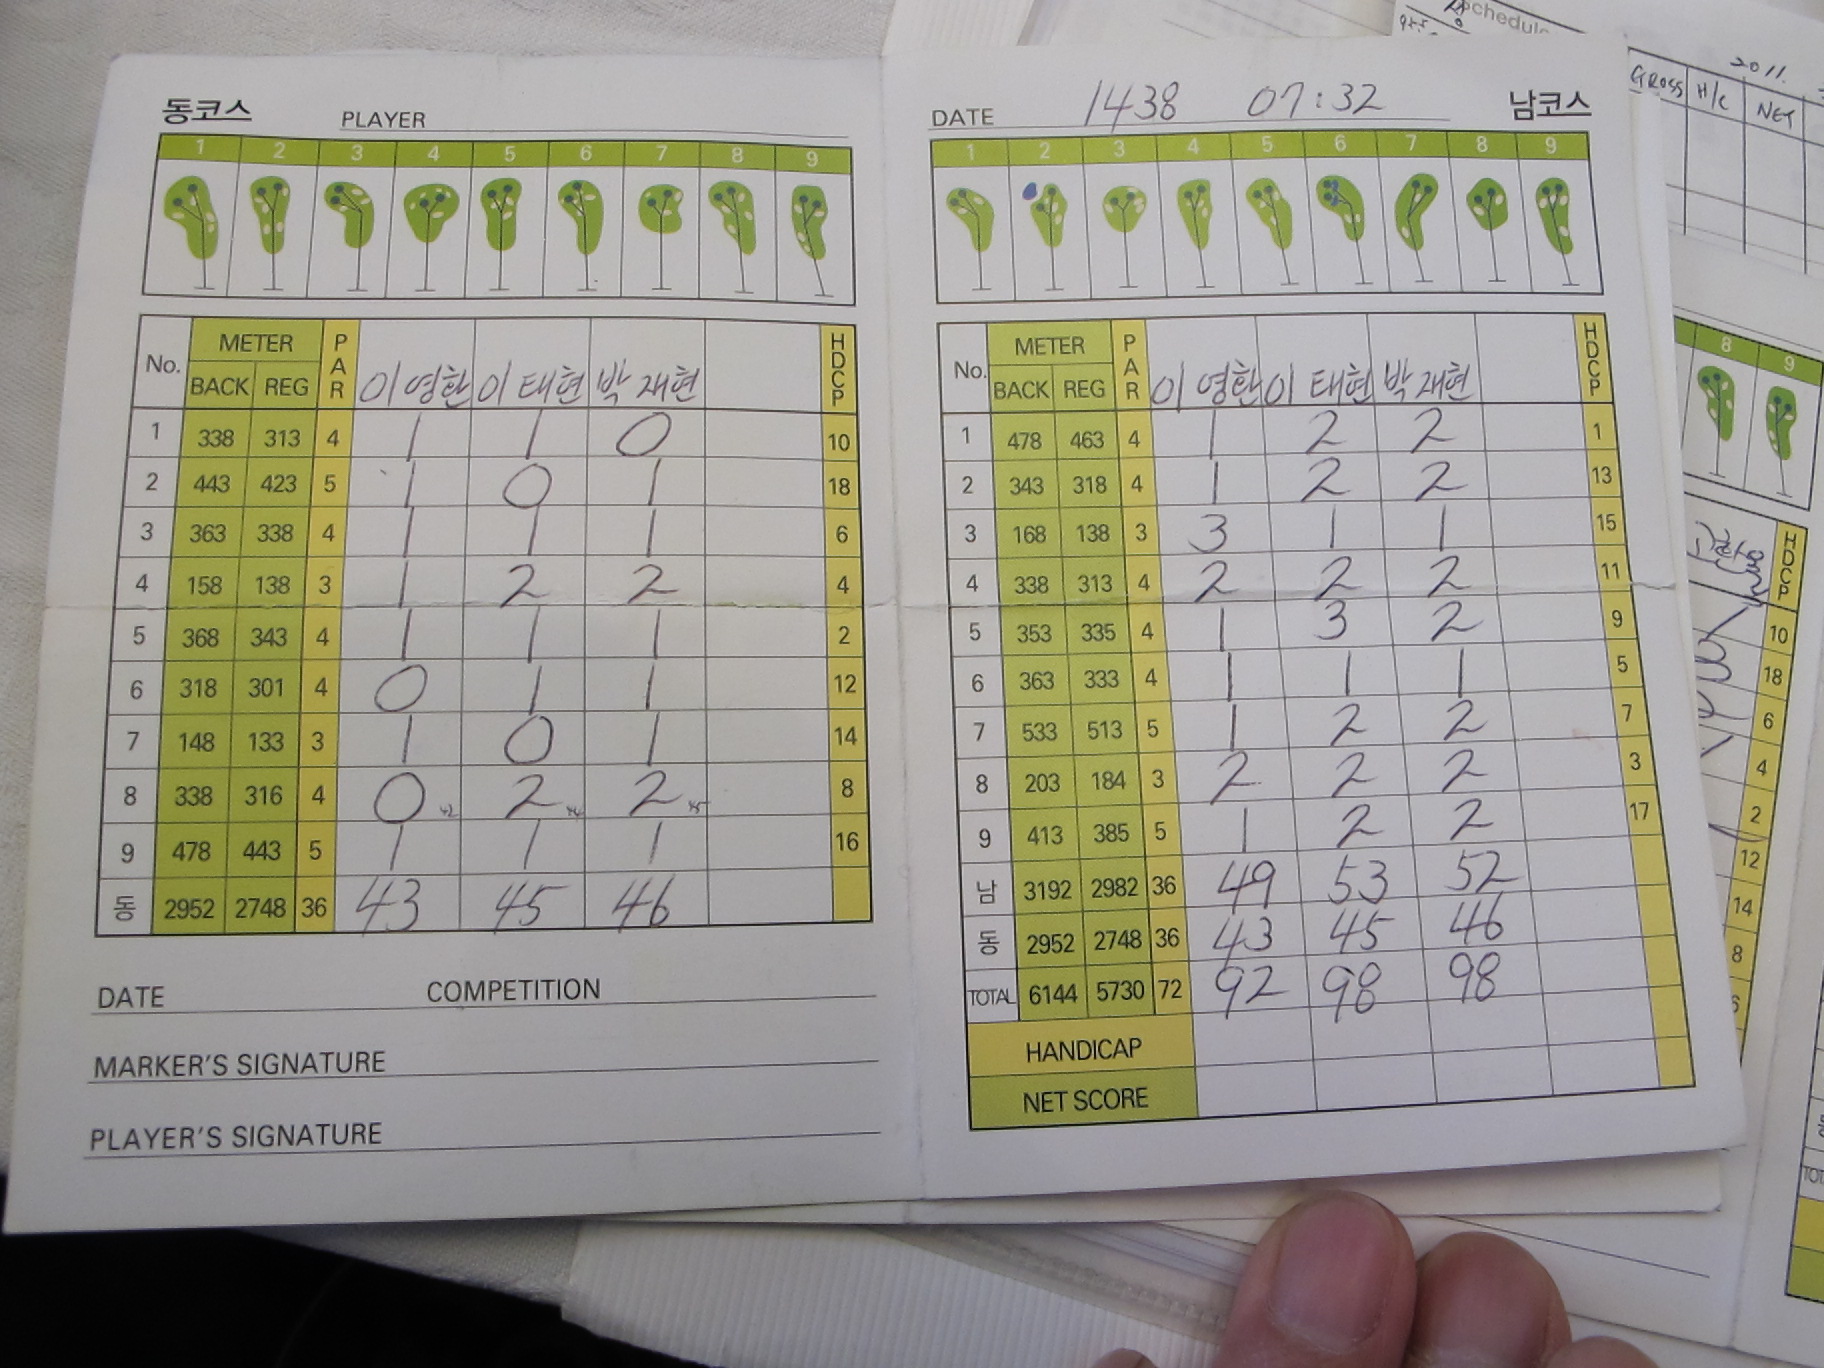 동코스 PLAYER
1 2 3 4 5 6 7 8 9
No. METER PAR 이영환 이태현 박재현 HDCP
BACK REG
1 338 313 4 1 1 0 10
2 443 423 5 1 0 1 18
3 363 338 4 1 1 1 6
4 158 138 3 1 2 2 4
5 368 343 4 1 1 1 2
6 318 301 4 0 1 1 12
7 148 133 3 1 0 1 14
8 338 316 4 0 42 2 44 2 45 8
9 478 443 5 1 1 1 16
동 2952 2748 36 43 45 46
DATE COMPETITION
MARKER'S SIGNATURE
PLAYER'S SIGNATURE
DATE 1438 07:32 남코스
1 2 3 4 5 6 7 8 9
No. METER PAR 이영환 이태현 박재현 HDCP
BACK REG
1 478 463 4 1 2 2 1
2 343 318 4 1 2 2 13
3 168 138 3 3 1 1 15
4 338 313 4 2 2 2 11
5 353 335 4 1 3 2 9
6 363 333 4 1 1 1 5
7 533 513 5 1 2 2 7
8 203 184 3 2 2 2 3
9 413 385 5 1 2 2 17
남 3192 2982 36 49 53 52
동 2952 2748 36 43 45 46
TOTAL 6144 5730 72 92 98 98
HANDICAP
NET SCORE
Schedule
2011.
GROSS H/C NET
8 9
HDCP
10
18
6
4
2
12
14
8